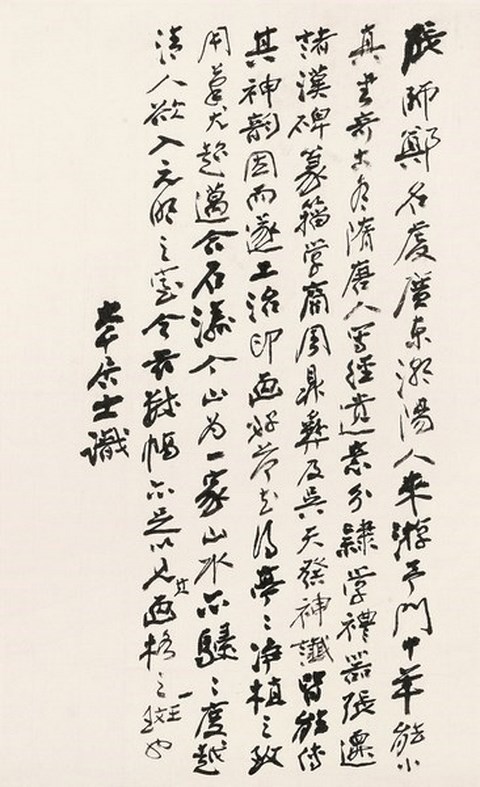 張師鄭名虔廣東潮陽人來游予門廿年能小
真書奇古有隋唐人寫經遺意分隸學禮器張遷
諸漢碑篆籀學商周鼎彝及吳天發神讖皆能傳
其神韻因而遂工治印畫好荷花得亭亭净植之致
用筆尤超邁合石濤个山为一家山水亦駸駸度越
清人欲入元明之室今茲數幅亦足以見其畫格之一斑也
大千居士識